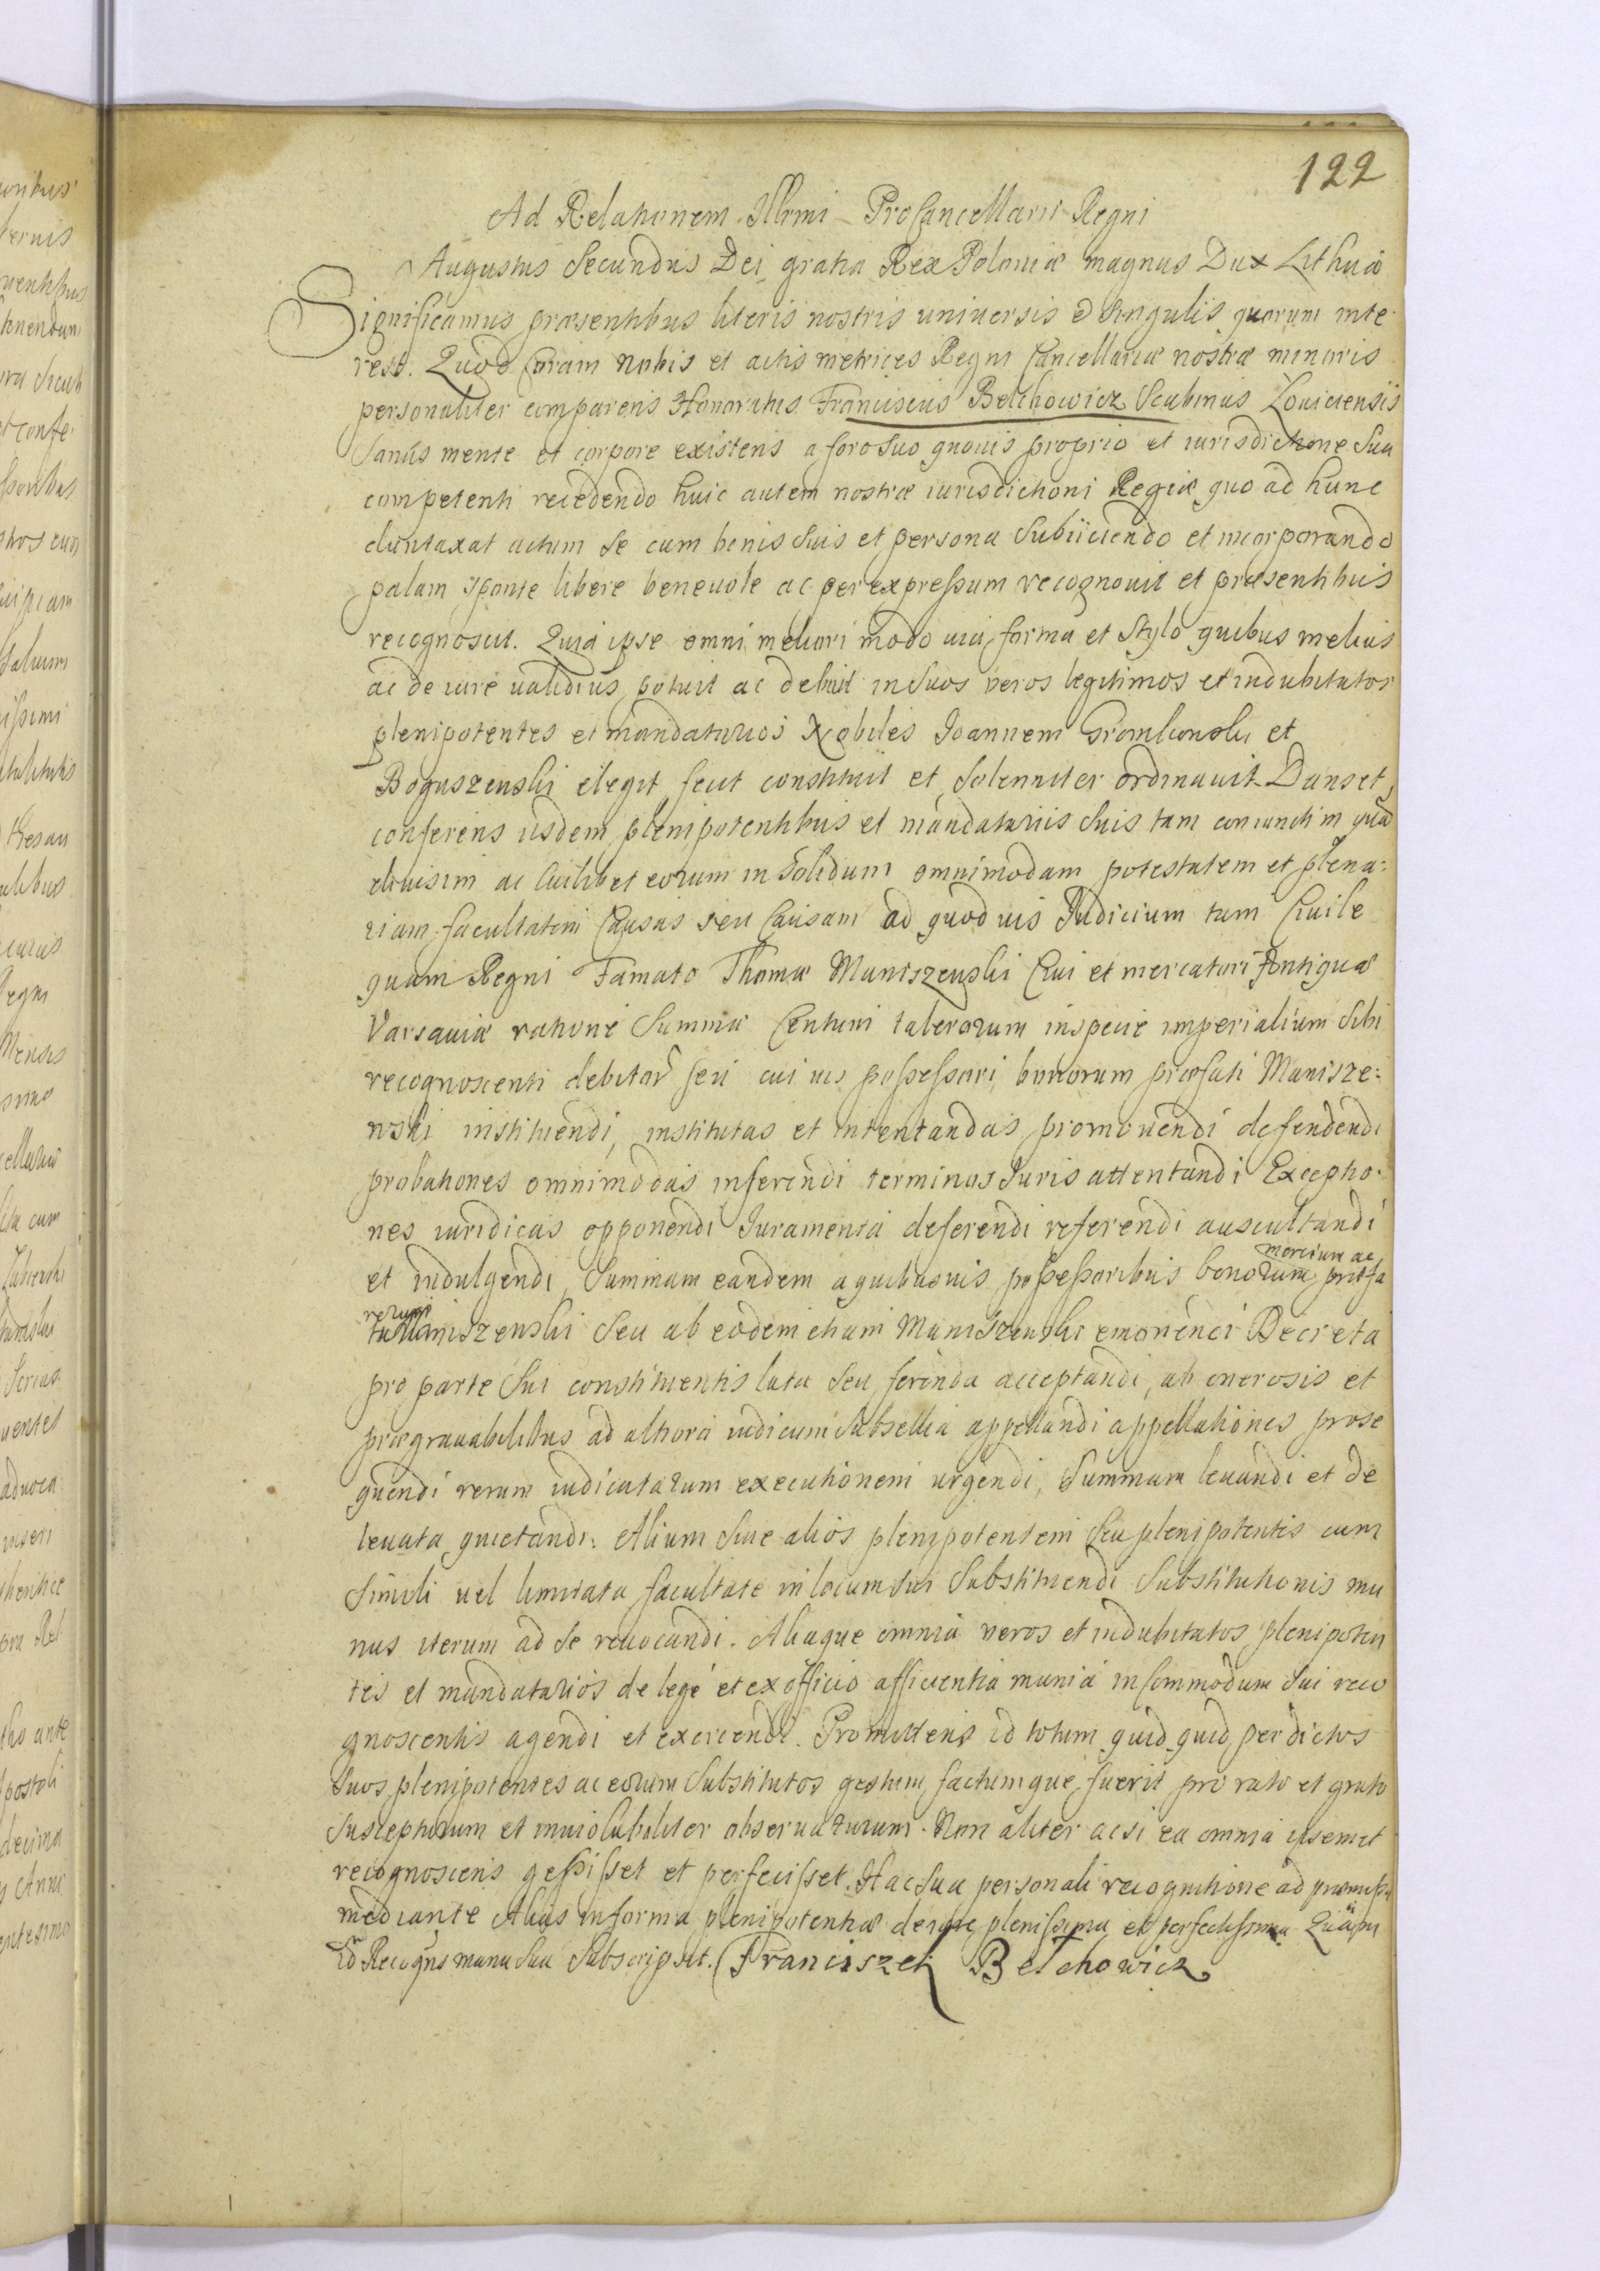 122
Ad Relationem Illrmi ProCancellarii Regni
Augustus Secundus Dei gratia Rex Poloniæ magnus Dux Lithuæ
Significamus præsentibus literis nostris universis & Singulis quorum inte
rest. Quod Coram Nobis et actis metrices Regni Cancellariæ nostræ minoris
personaliter comparens Honoratus Franciscus Belchowicz Scabinus Loviciensis
Sanus mente et corpore existens a foro Suo quovis proprio et iurisdictione Sua
competenti recedendo huic autem nostræ iurisdictioni Regiæ quo ad hunc
duntaxat actum Se cum bonis Suis et persona Subiiciendo et incorporando
palam sponte libere benevole ac per expressum recognovit et præsentibus
recognoscit. Quia ipse omni meliori modo via forma et Stylo quibus melius
ac de iure validius potuit ac debuit in Suos veros legitimos et indubitatos
plenipotentes et mandatarios Nobiles Joannem et
Boguszewski elegit fecit constituit et Solenniter ordinavit Dans et
conferens iisdem plenipotentibus et mandatariis Suis tam coniunctim quã
divisim ac Cuilibet eorum in Solidum omnimodam potestatem et plena:
riam facultatem Causas seu Causam ad quod vis Judicium tam Civile
quam Regni Famato Thomæ Maniszewski Civi et mercatori Antiquæ
Varsaviæ ratione Summæ Centum talerorum in specie imperialium Sibi
recognoscenti debitar seu cui vis possessori bonorum præfati Manisze:
wski instituendi, institutas et intentandas promovendi defendendi
probationes omnimodas inferendi terminos Juris attentandi Exceptio:
nes iuridicas opponendi Juramenta deferendi referendi auscultandi
et indulgendi, Summam eandem a quibusvis possessoribus bonorum mercium ac præfa
rerum ti Maniszewski Seu ab eodem etiam Maniszewski emonendi Decreta
pro parte Sui constituentis lata Seu ferenda acceptandi, ab onerosis et
prægravabilibus ad altiora iudicum Subsellia appellandi appellationes prose
quendi rerum iudicatarum executionem urgendi, Summam levandi et de
levata quietandi. Alium Sive alios plenipotentem Seu plenipotentis cum
Simili vel limitata facultate in locum Sui Substituendi Substitutionis mu
nus iterum ad Se revocandi. Aliaque omnia veros et indubitatos plenipoten
tes et mandatarios de lege et ex officio afficientia munia in Commodum Sui reco
gnoscentis agendi et exercendi. Promittens id totum quid quid per dictos
Suos plenipotentes ac eorum Substitutos gestum factumque fuerit pro rato et grato
Suscepturum et inviolabiliter observaturum. Non aliter ac si ea omnia ipsemet
recognoscens gessisset et perfecisset. Hac Sua personali recognitione ad præmissa
mediante Alias in forma plenipotentiæ de iure plenissima et perfectissima
id Recogns manu Sua Subscripsit. Franciszek Belchowicz